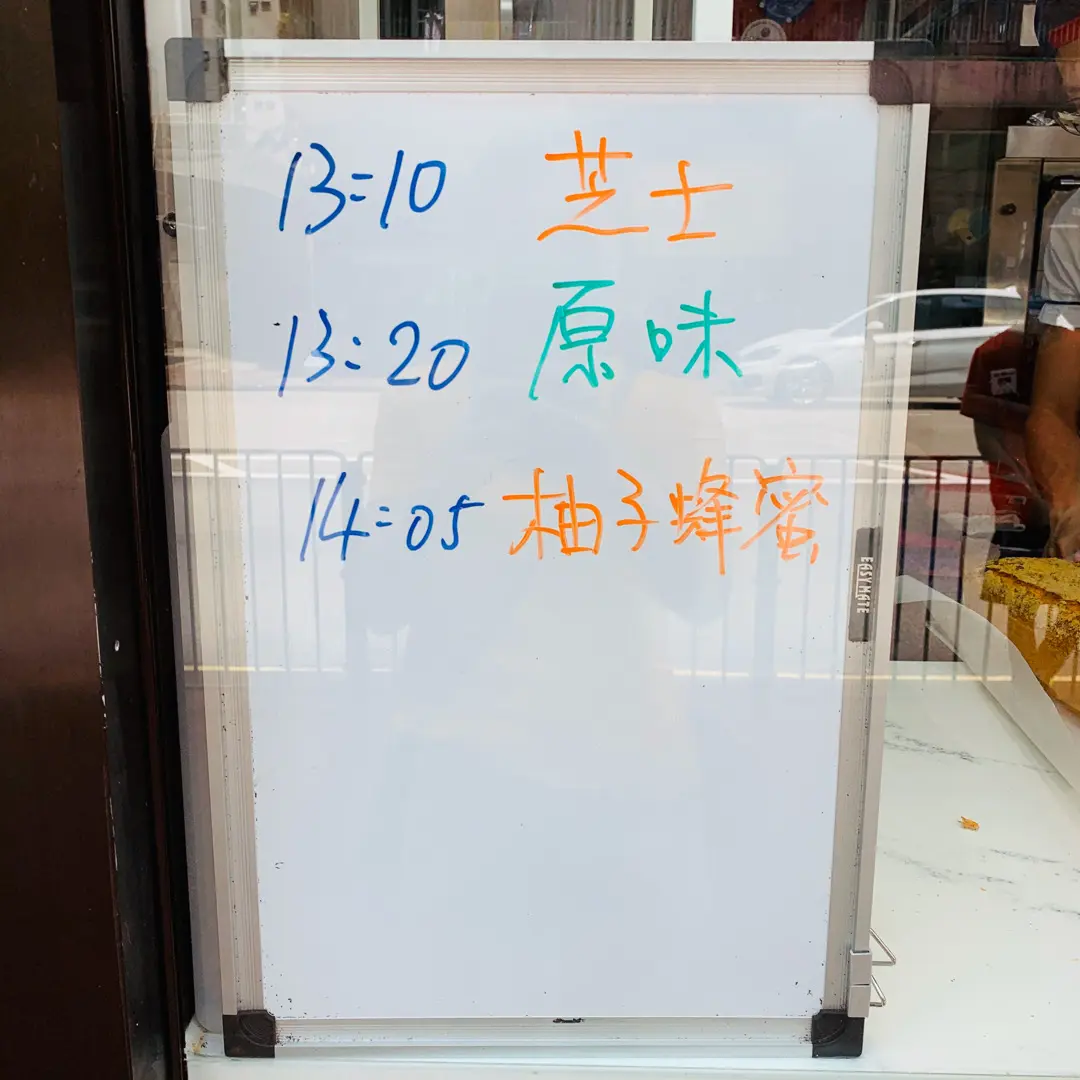 13:10 芝士
13:20 原味
14:05 柚子蜂蜜
EASYMATE